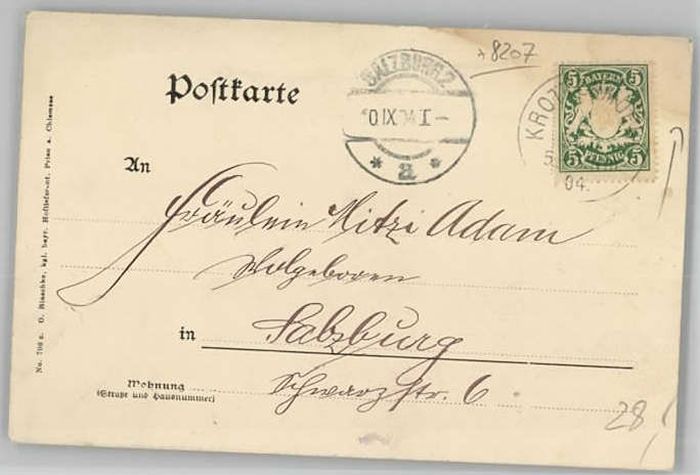 +8207
SALZBURG 2
0 IX 04 I-
* a *
KROT
5
04.
5 BAYERN 5
5 PFENNIG 5
Postkarte
An
Fräulein Mitzi Adam
Wolgeboren
in Salzburg
Schwarzstr. 6
Wohnung
(Straße und Hausnummer)
28
No. 706 a. O. Blaschke, kgl. bayr. Hoflieferant, Prien a. Chiemsee